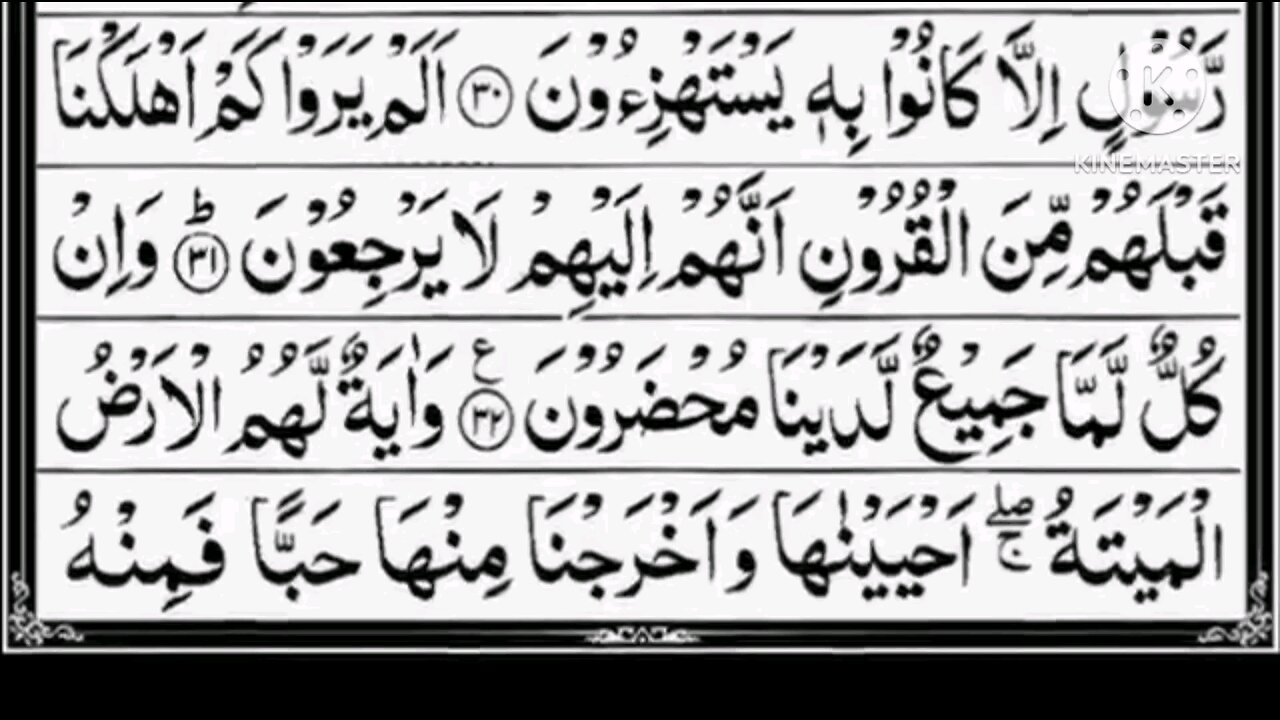 رَّسُوۡلٍ اِلَّا كَانُوۡا بِهٖ يَسۡتَهۡزِءُوۡنَ ﴿۳۰﴾ اَلَمۡ يَرَوۡا كَمۡ اَهۡلَكۡنَا
KINEMASTER
قَبۡلَهُمۡ مِّنَ الۡقُرُوۡنِ اَنَّهُمۡ اِلَيۡهِمۡ لَا يَرۡجِعُوۡنَ ؕ‏ ﴿۳۱﴾ وَاِنۡ
كُلٌّ لَّمَّا جَمِيۡعٌ لَّدَيۡنَا مُحۡضَرُوۡنَ ﴿۳۲﴾ ع وَاٰيَةٌ لَّهُمُ الۡاَرۡضُ
الۡمَيۡتَةُ ۖۚ اَحۡيَيۡنٰهَا وَاَخۡرَجۡنَا مِنۡهَا حَبًّا فَمِنۡهُ